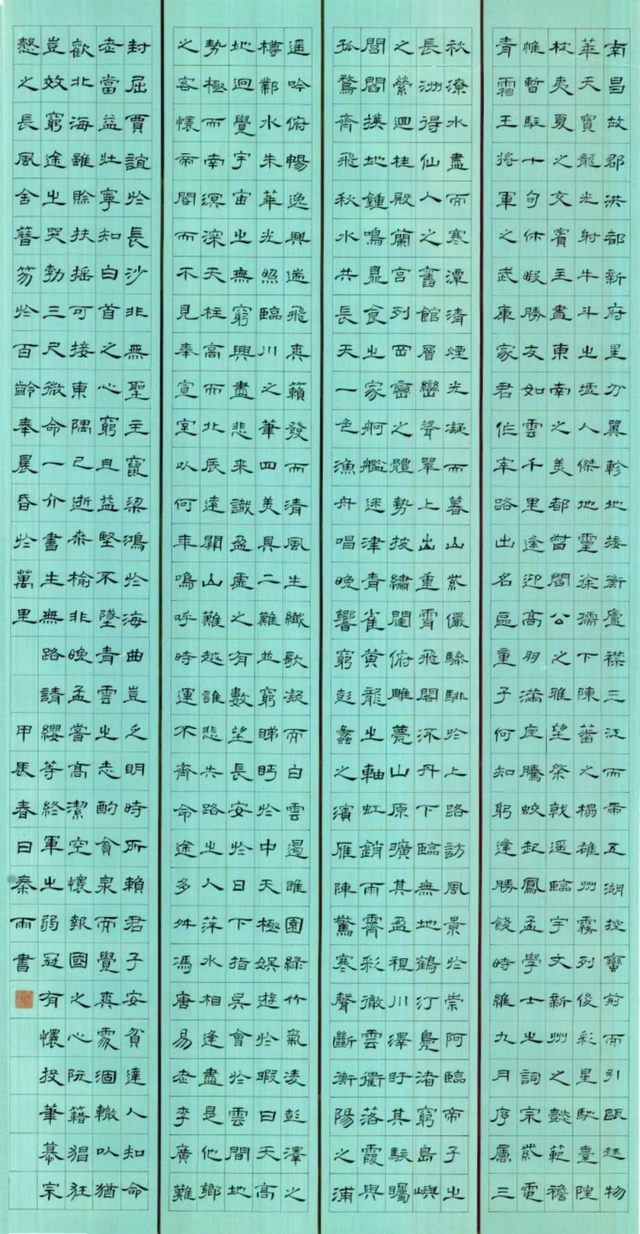 南昌故郡洪都新府星分翼軫地接衡廬襟三江而帶五湖控蠻荊而引甌越物
華天寶龍光射牛斗之墟人傑地靈徐孺下陳蕃之榻雄州霧列俊彩星馳臺隍
枕夷夏之交賓主盡東南之美都督閻公之雅望棨戟遥臨宇文新州之懿範襜
帷暫駐十旬休暇勝友如雲千里逢迎高朋滿座騰蛟起鳳孟學士之詞宗紫電
青霜王將軍之武庫家君作宰路出名區童子何知躬逢勝餞時維九月序屬三
秋潦水盡而寒潭清煙光凝而暮山紫儼驂騑於上路訪風景於崇阿臨帝子之
長洲得仙人之舊館層巒聳翠上出重霄飛閣流丹下臨無地鶴汀鳧渚窮島嶼
之縈迴桂殿蘭宮列岡巒之體勢披繡闥俯雕甍山原曠其盈視川澤盱其駭矚
閭閻撲地鍾鳴鼎食之家舸艦迷津青雀黃龍之軸虹銷雨霽彩徹雲衢落霞與
孤鶩齊飛秋水共長天一色漁舟唱晚響窮彭蠡之濱雁陣驚寒聲斷衡陽之浦
遥吟俯暢逸興遄飛爽籟發而清風生纖歌凝而白雲遏睢園綠竹氣凌彭澤之
樽鄴水朱華光照臨川之筆四美具二難並窮睇眄於中天極娛遊於暇日天高
地迥覺宇宙之無窮興盡悲來識盈虛之有數望長安於日下指吳會於雲間地
勢極而南溟深天柱高而北辰遠關山難越誰悲失路之人萍水相逢盡是他鄉
之客懷帝閽而不見奉宣室以何年嗚呼時運不齊命途多舛馮唐易老李廣難
封屈賈誼於長沙非無聖主竄梁鴻於海曲豈乏明時所賴君子安貧達人知命
老當益壯寧知白首之心窮且益堅不墜青雲之志酌貪泉而覺爽處涸轍以猶
歡北海雖賒扶搖可接東隅已逝桑榆非晚孟嘗高潔空懷報國之心阮籍猖狂
豈效窮途之哭勃三尺微命一介書生無路請纓等終軍之弱冠有懷投筆慕宗
愨之長風舍簪笏於百齡奉晨昏於萬里 甲辰春日秦雨書